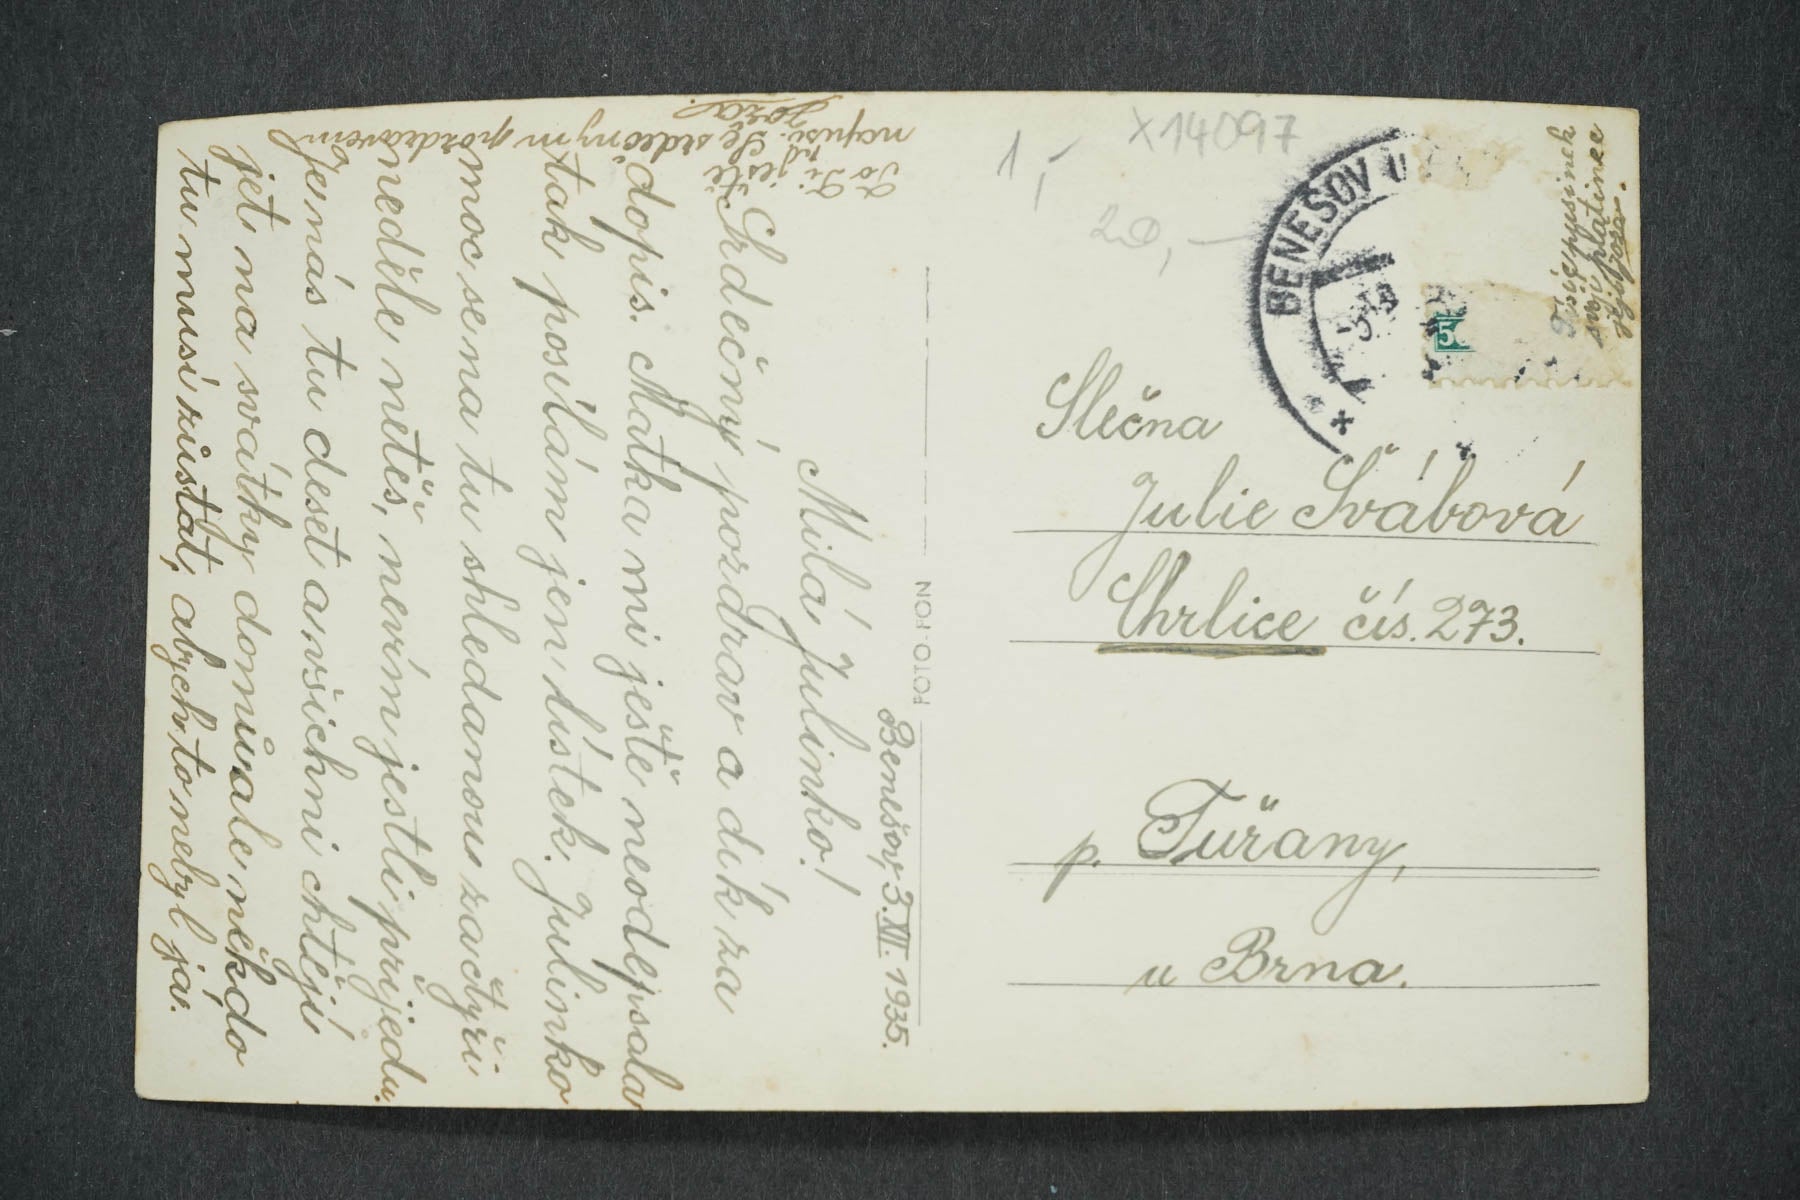 Benešov, 3.XII.1935.
Milá Julinko!
Srdečný pozdrav a dík za
dopis. Matka mi ještě neodepsala
tak posílám jen lístek. Julinko
moc se na tu shledanou začtyři
neděle netěš, nevím jestli přijedu.
Je nás tu deset a všichni chtějí
jet na svátky domů ale někdo
tu musí zůstat, abych to nebyl já.
To Ti ještě
napíši. Se srdečným pozdravem
Joža.
X14097
1,-
20,-
BENEŠOV U
5
Tisíc pusinek
svojí zlatince
její Joža.
Slečna
Julie Švábová
Chrlice čís. 273.
p. Tuřany,
u Brna.
FOTO-FON